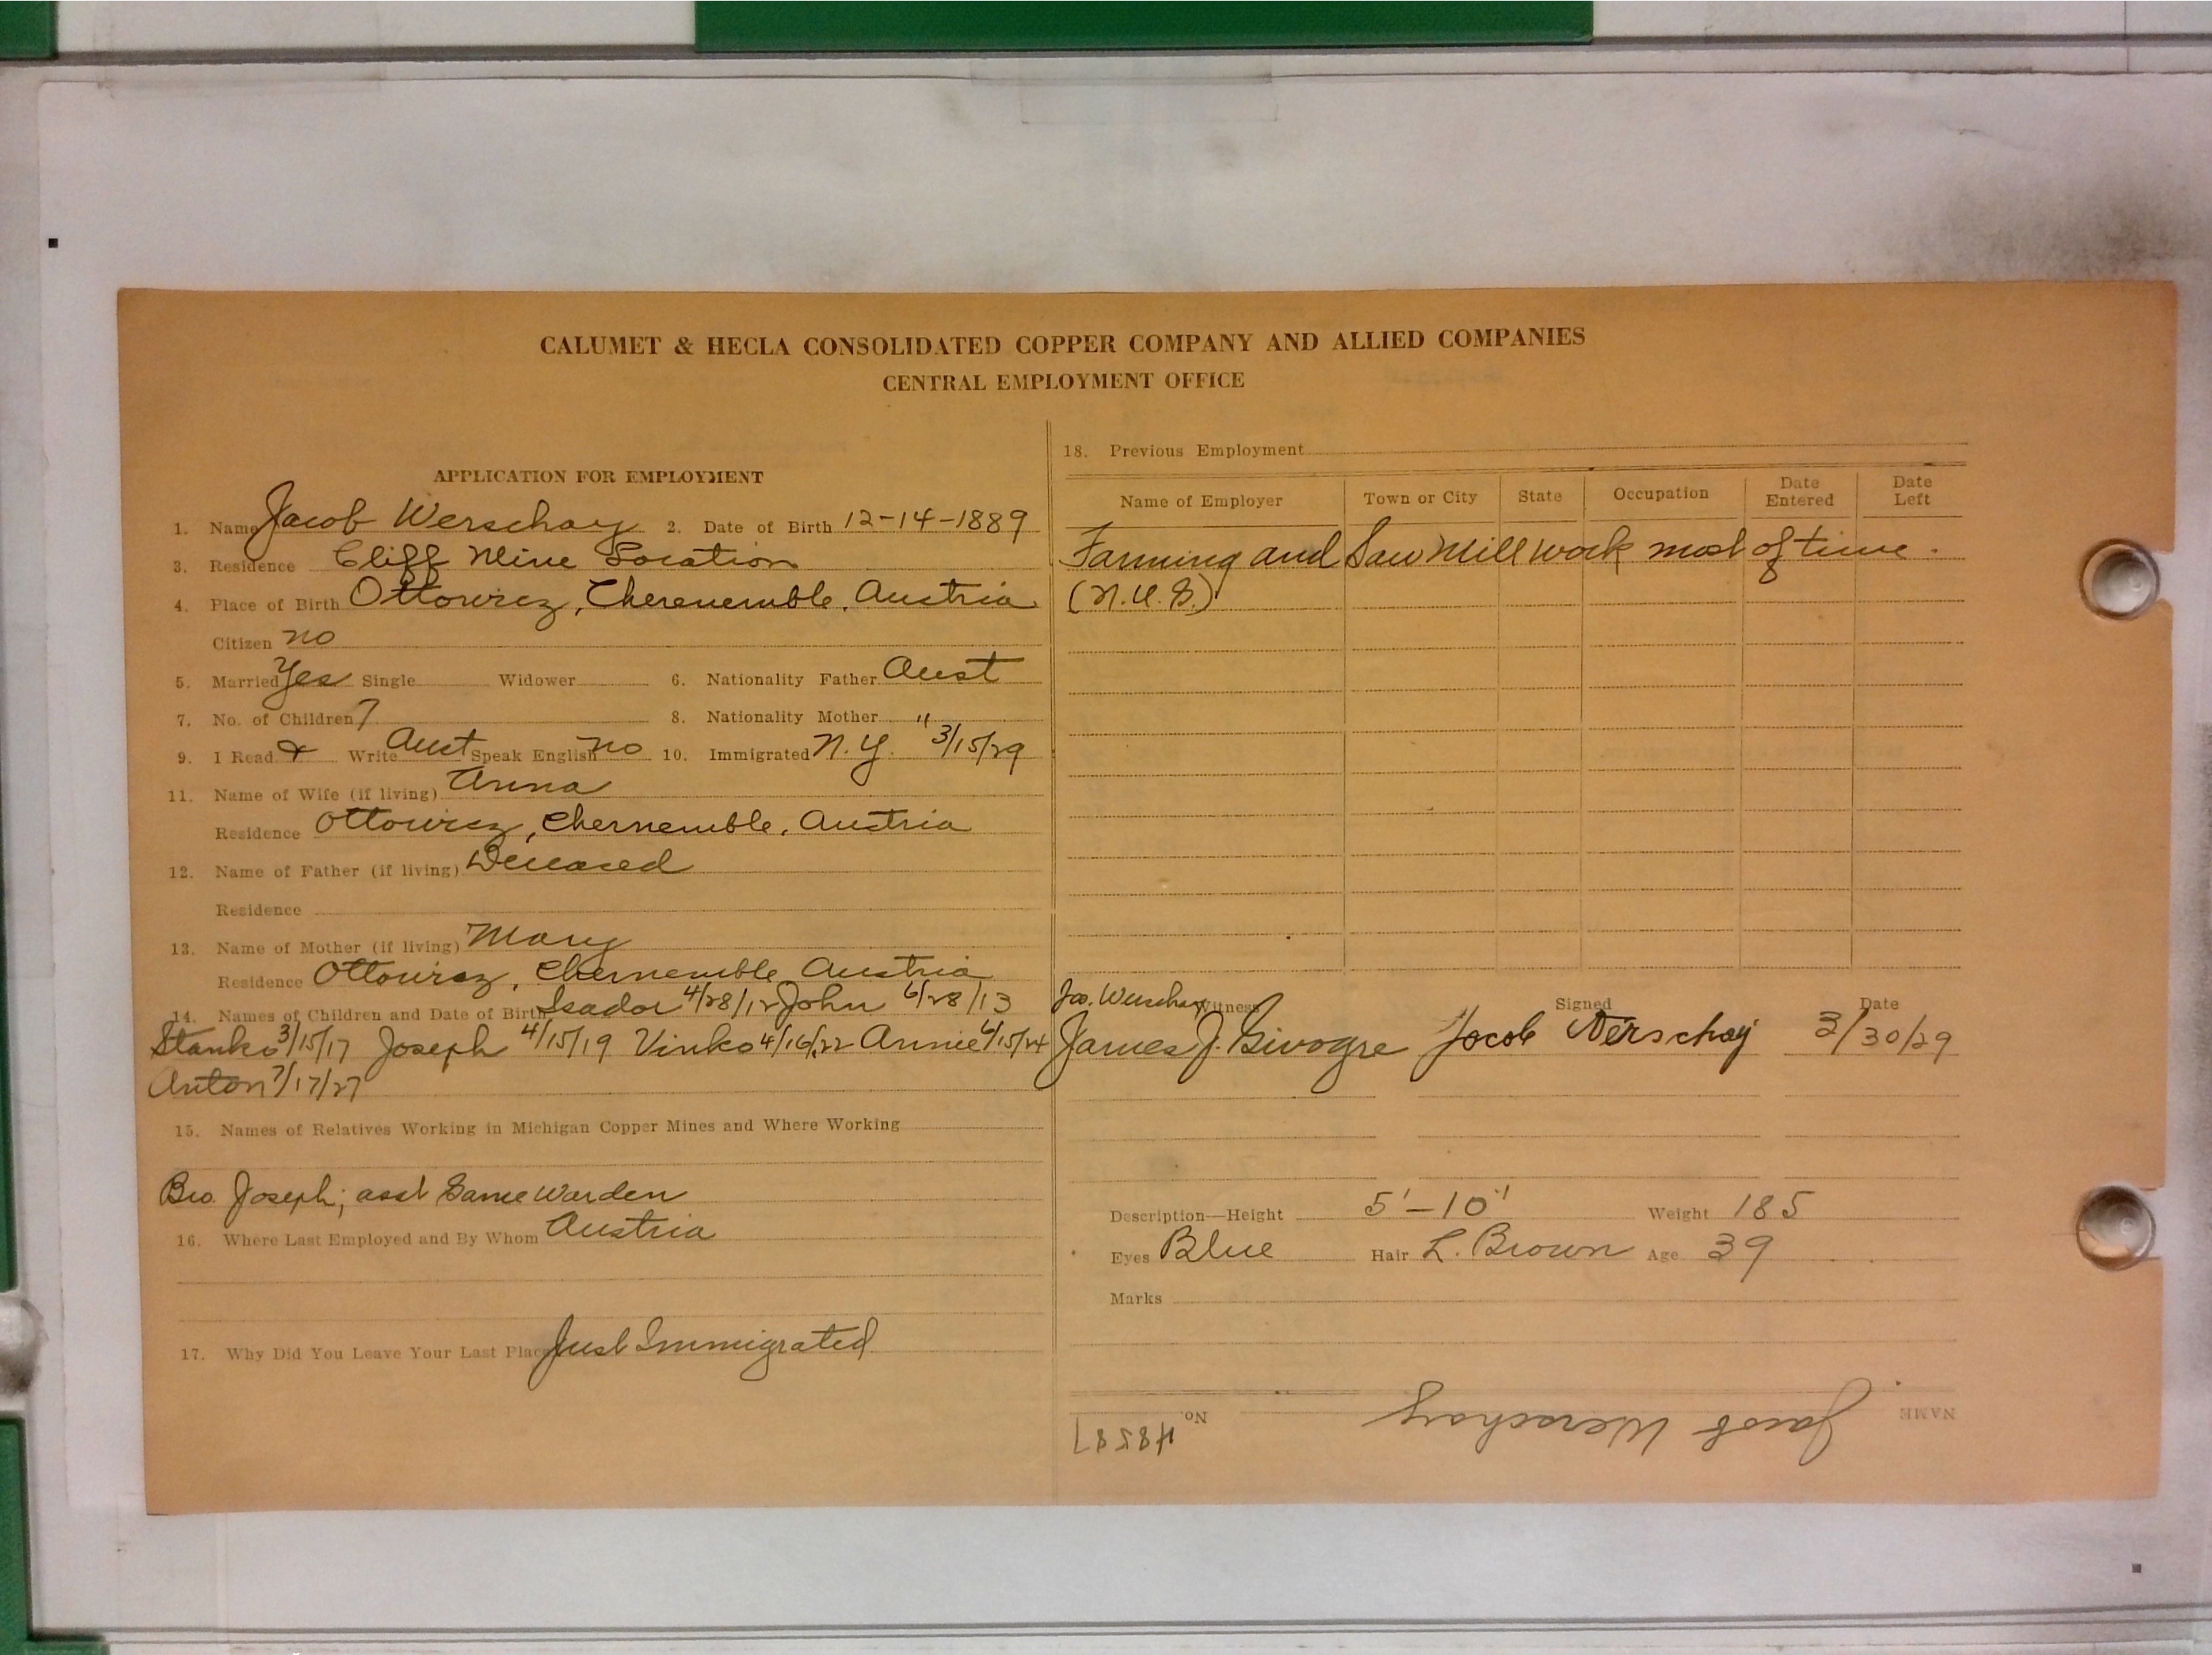 CALUMET & HECLA CONSOLIDATED COPPER COMPANY AND ALLIED COMPANIES
CENTRAL EMPLOYMENT OFFICE
APPLICATION FOR EMPLOYMENT
1. Name Jacob Werschay 2. Date of Birth 12-14-1889
3. Residence Cliff Mine Location
4. Place of Birth Ottowicz, Cherenemble, Austria
Citizen no
5. Married Yes Single Widower 6. Nationality Father Aust
7. No. of Children 7 8. Nationality Mother "
9. I Read & Write Aust Speak English no 10. Immigrated N.Y. 3/15/29
11. Name of Wife (if living) Anna
Residence Ottowicz, Chernemble, Austria
12. Name of Father (if living) Deceased
Residence
13. Name of Mother (if living) Mary
Residence Ottowicz, Chernemble, Austria
14. Names of Children and Date of Birth Isador 4/28/12 John 6/28/13
Stanko 3/15/17 Joseph 4/15/19 Vinko 4/16/22 Annie 6/15/24
Anton 7/17/27
15. Names of Relatives Working in Michigan Copper Mines and Where Working
Bro. Joseph; asst Game Warden
16. Where Last Employed and By Whom Austria
17. Why Did You Leave Your Last Place Just Immigrated
18. Previous Employment
Name of Employer Town or City State Occupation Date Entered Date Left
Farming and Saw Mill work most of time.
(N.U.S.)
Jos. Werschay Witness Signed Date
James J. Jacob Werschay 3/30/29
Description—Height 5'-10" Weight 185
Eyes Blue Hair L. Brown Age 39
Marks
NAME Jacob Werschay No. 48587